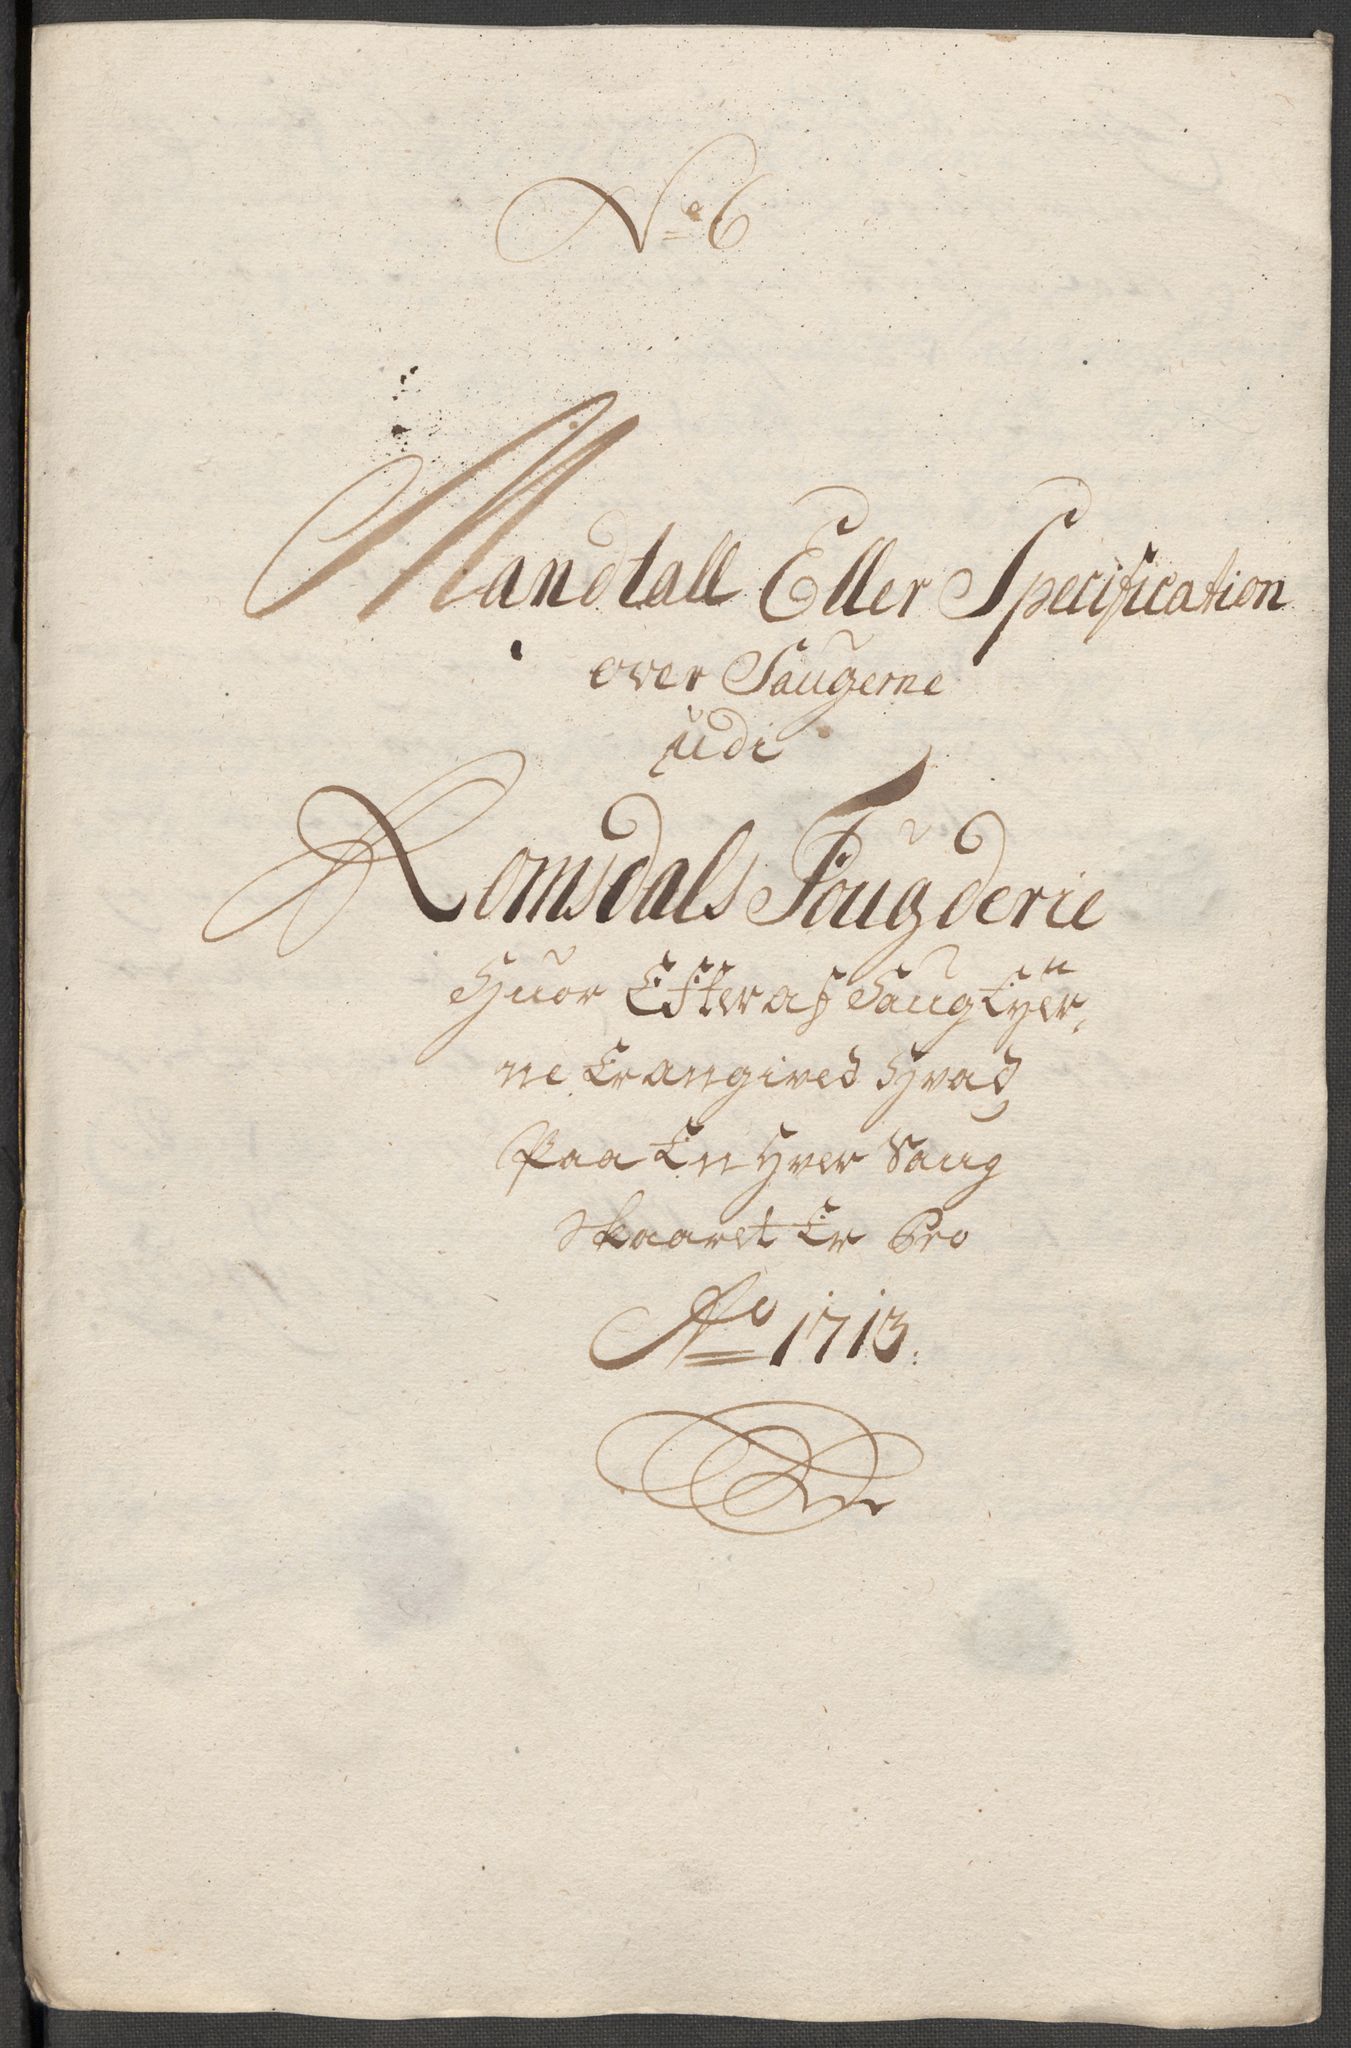 No 6
Mandtall Eller Specification
over Saugerne
udi
Romsdals Fougderie
Huor Efter af Saug Eyer,
ne Er angived Hvad
Paa En Hver Saug
Skaaret Er Pro
Ao 1713.